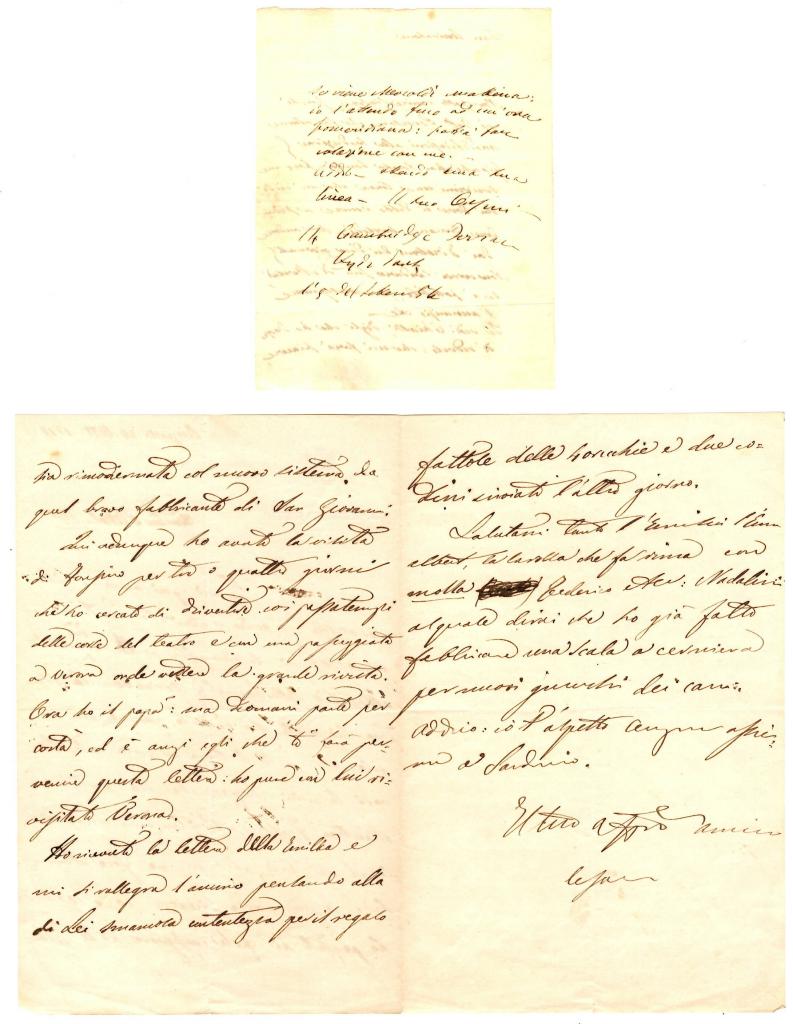 se viene Mercoldì mattina:
io l'attendo fino ad un'ora
pomeridiana: potrà far
colazione con me.
Addio – una tua
linea – Il tuo
14 Cambridge Terrace
Hyde Park
del 54
sia rimodernata col nuovo sistema, da
quel bravo fabbricante di San Giovanni.
Qui adunque ho avuto la visita
di per tre o quattro giorni
che ho cercato di divertire coi passatempi
delle corse del teatro e con una passeggiata
a Verona onde vedere la grande rivista.
Ora ho il papà: ma domani parte per
costà, ed è anzi egli che ti farà per-
venire questa lettera: ho pure con lui ri-
visitato Verona.
Ho ricevuto la lettera della Emilia e
mi si rallegra l'animo pensando alla
di Lei smaniosa contentezza per il regalo
fattole delle e due co-
dini inviati l'altro giorno.
Salutami tanto l'Emilia l'
la che fa rima con
molla Federico e Nadalini
al quale dirai che ho già fatto
fabbricare una scala a cerniera
per nuovi giuochi dei cani.
Addio: io t'aspetto
a
Il tuo affmo amico